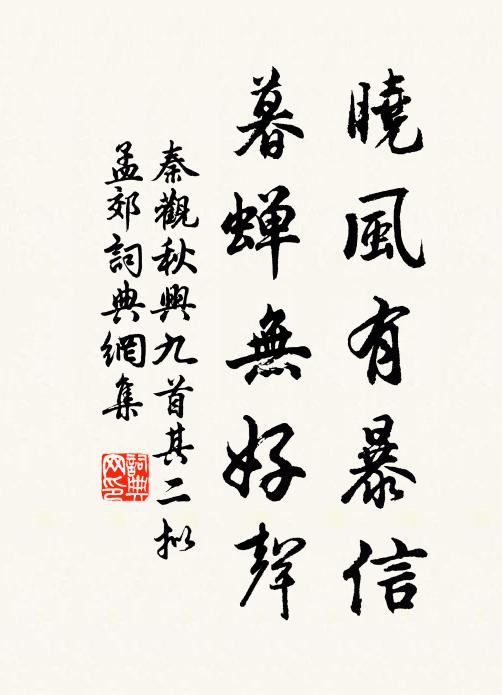 曉風有暴信
暮蝉無好聲
秦觀秋興九首其二擬
孟郊詞典網集
詞典
网印